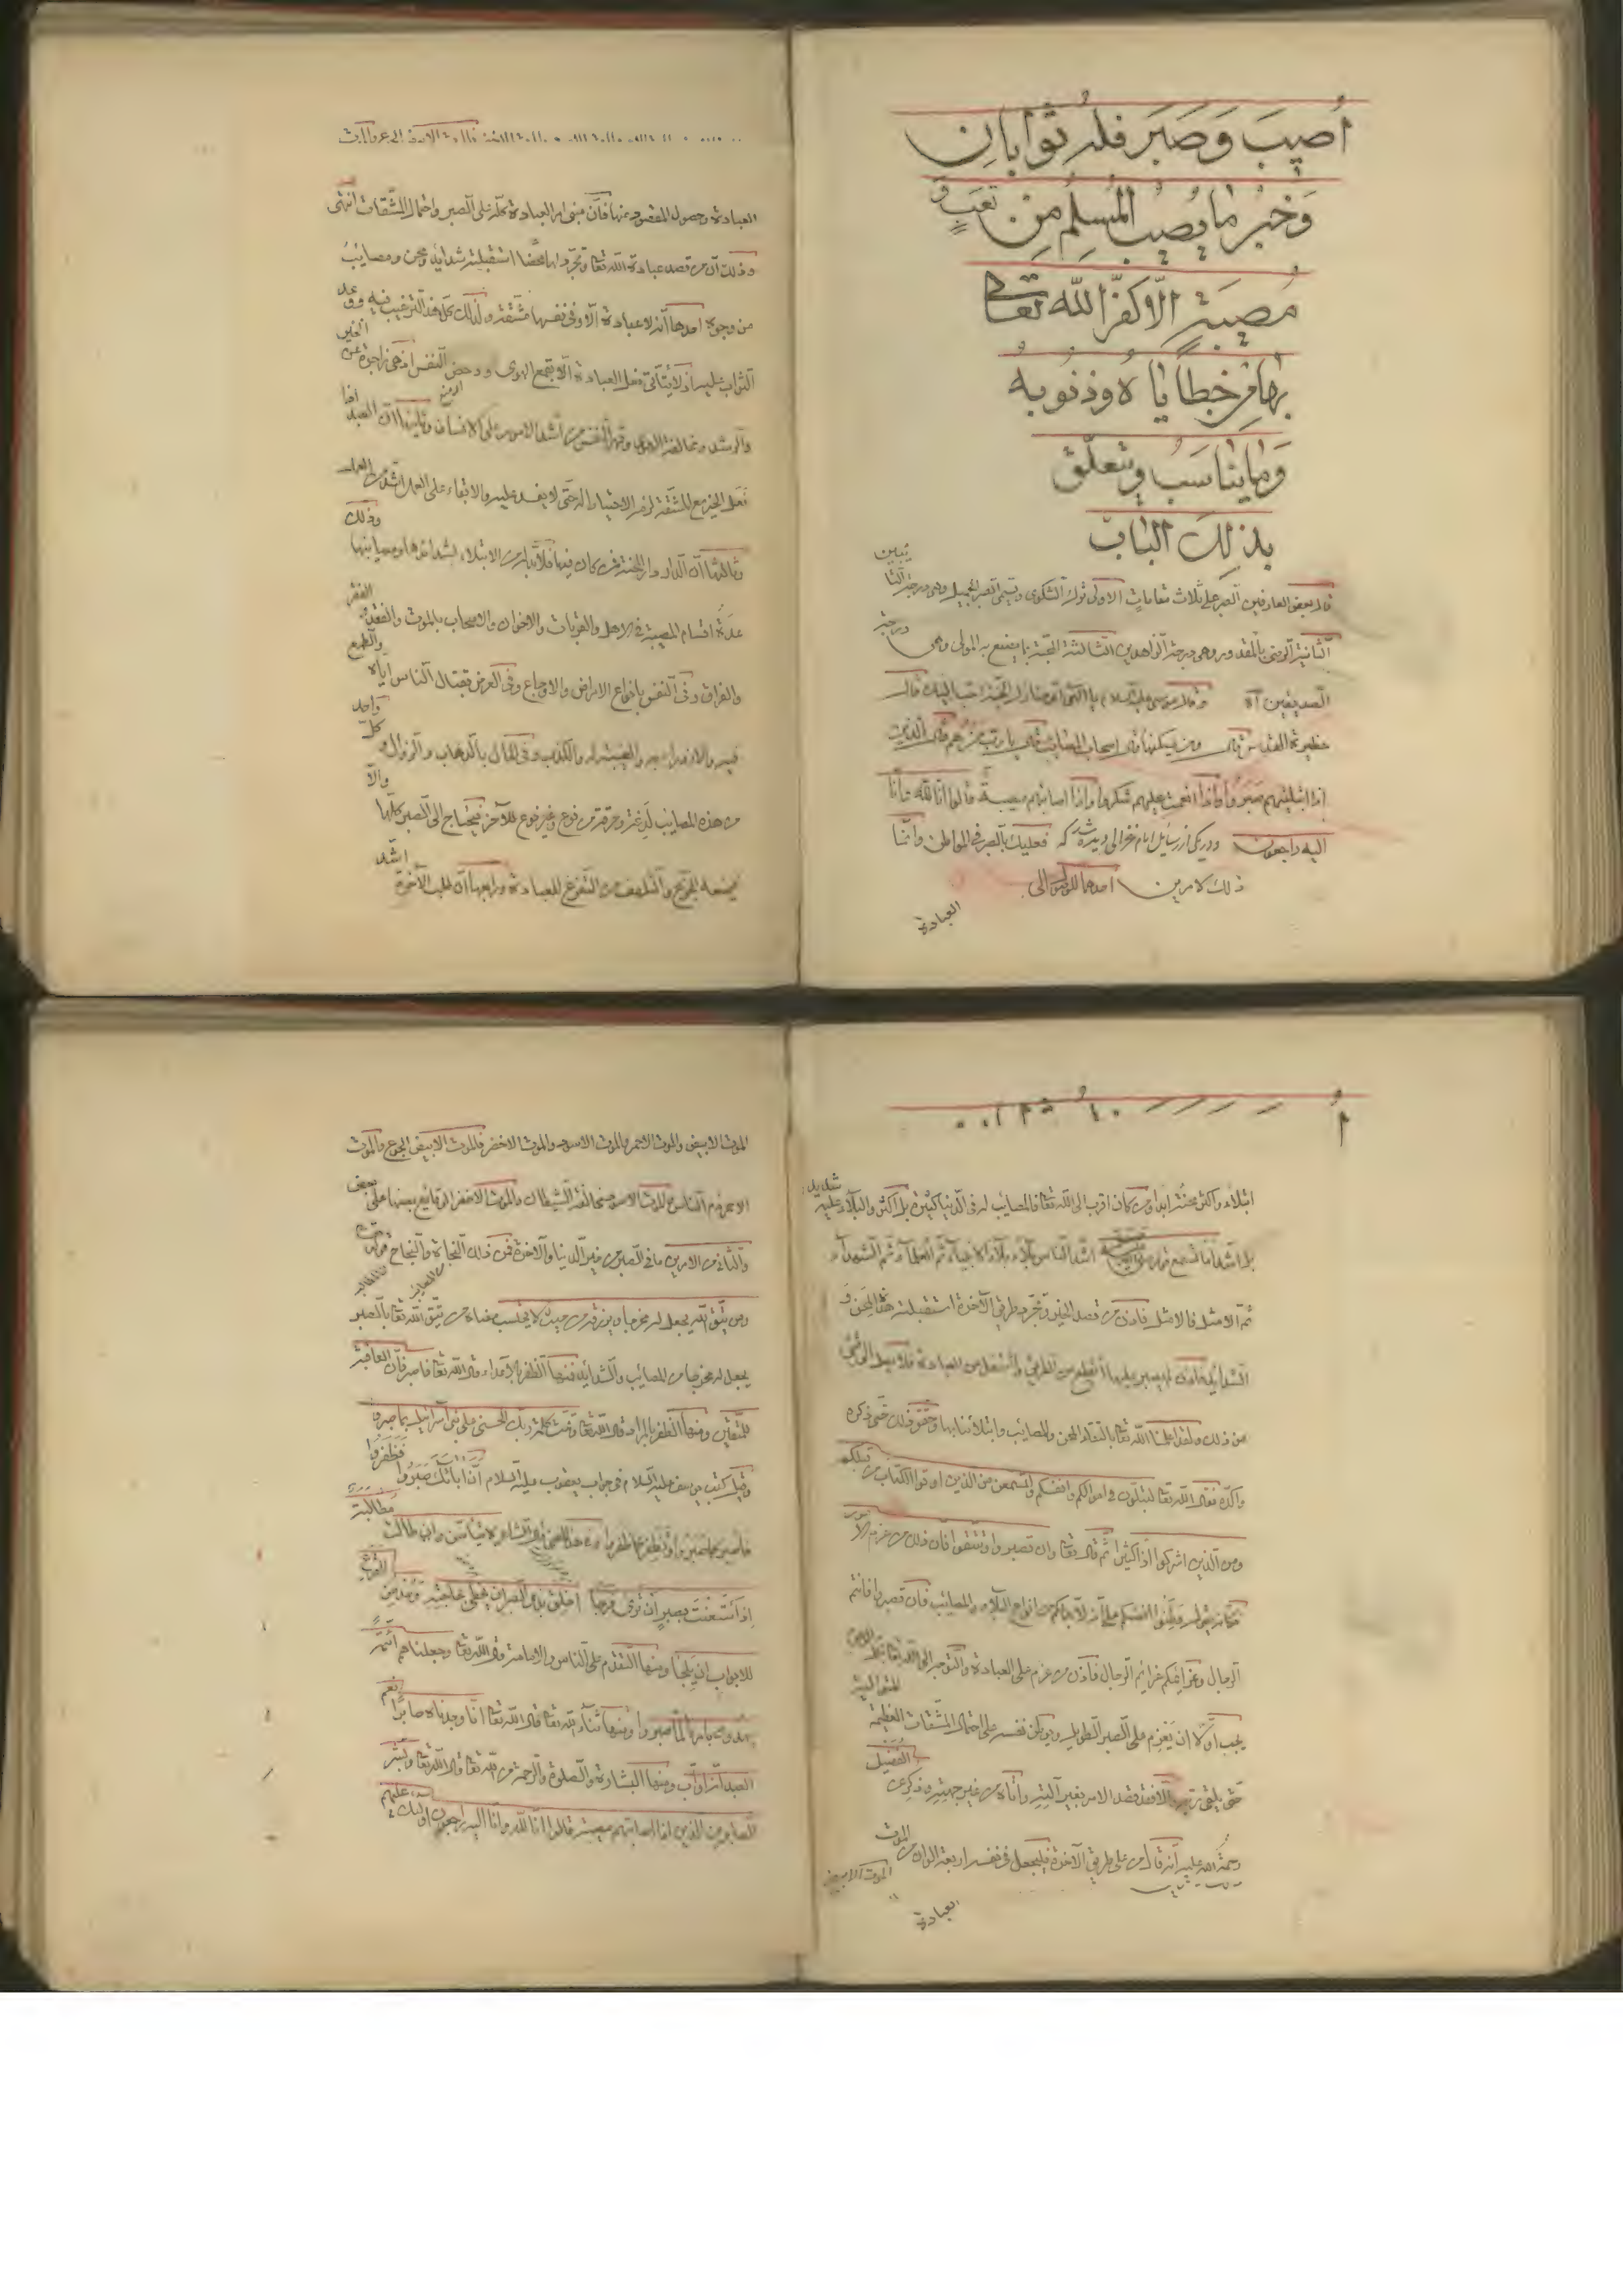 اُصِيبَ وَصَبَر فله ثوابانِ
وَخبر ما يصيب المُسلِم مِن تَعَبٍ وَ
مُصيبة الّا كفّر الله تعالى
بها من خطاياه وذنوبه
وَما يناسَبُ ويتعلّق
بذلك الباب
قال بعض العارفين الصبر على ثلاث مقامات الاولى ترك الشكوى ويسمى الصبر الجميل وهى درجة التائبين
الثانية الرضى بالمقدور وهى درجة الزاهدين الثالثة المحبّة بما يصنع به المولى وهى درجة
الصديقين آه وقال موسى عليه السلام يا الهى اى منازل الجنة احب اليك قال
حظيرة القدس قال ومن يسكنها قال اصحاب المصائب قال يا رب من هم قال الذين
اذا ابتليتهم صبروا واذا انعمت عليهم شكروا واذا اصابتهم مصيبة قالوا انا لله وانا
اليه راجعون ودر يكى از رسايل امام غزالى ديده شد كه فعليك بالصبر فى المواطن وانما
ذلك لامرين احدهما للوصول الى
العبادة
العبادة وحصول المقصود منها فان مبنى امر العبادة كله على الصبر واحتمال المشقات انتهى
وذلك ان من قصد عبادة الله تعالى وتجرد لها محضا استقبلته شدايد ومحن ومصايب
من وجوه احدها انه لا عبادة الا وفى نفسها مشقة ولذلك كل هذا الترغيب فيه ووعد
الثواب عليه اذ لا يتاتى فعل العبادة الا بقمع الهوى ودحض النفس اذ هى زاجرة عن الخير
والرشد ومخالفة الهوى وقهر النفس من اشد الامور على الانسان وثانيها ان العبد اذا
فعل الخير مع المشقة لزمه الاحتياط له حتى لا يفسد عليه والابقاء على العمل اشد من العمل
وثالثها ان الدار دار المحنة فمن كان فيها فلا بد له من الابتلاء بشدائدها ومصايبها وذلك
عدة اقسام المصيبة فى الاهل والقربات والاخوان والاصحاب بالموت والفقد والفقر
والفراق وفى النفس بانواع الامراض والاوجاع وفى العرض بقتال الناس اياه والطمع
فيه والازدراء به والغيبة له والكذب وفى المال بالذهاب والزوال ولكل واحد
من هذه المصايب لدغة وحرقة من نوع وغير نوع للآخر فيحتاج الى الصبر كلها والا
فيمنعه الجزع والتلهف من التفرغ للعبادة ورابعها ان طلب الآخرة اشد
ابتلاء واكثر محنة ابدا ومن كان اقرب الى الله تعالى فالمصايب له فى الدنيا كثيرة بل اكثر والبلاء عليه شديد
بل اشد اما تسمع اشد الناس بلاء الانبياء ثم العلماء ثم الشهداء
ثم الامثل فالامثل فاذن من قصد الخير وتجرد طريق الآخرة استقبلته هذه المحن و
الشدايد فان لم يصبر عليها انقطع من الطريق واشتغل من العبادة فلا يصل الى شئ
من ذلك ولقد علمنا الله تعالى بالتقاء المحن والمصايب وابتلائنا بها وحقق ذلك حتى ذكره
واكده فقال الله تعالى لتبلون فى اموالكم وانفسكم ولتسمعن من الذين اوتوا الكتاب من قبلكم
ومن الذين اشركوا اذى كثيرا ثم قال تعالى وان تصبروا وتتقوا فان ذلك من عزم الامور
فكانه يقول وطنوا انفسكم على انه لا بد لكم من انواع البلاء والمصائب فان تصبروا فانتم
الرجال وعزائمكم عزائم الرجال فاذن من عزم على العبادة والتوجه الى الله تعالى
يجب اولا ان يعزم على الصبر الطويل ويوطن نفسه على احتمال المشقات العظيمة
حتى يلقى ربه والا فقد قصد الامر بغير آلته واتاه من غير جهته وذكر عن الفضيل
رحمة الله عليه انه قال من على طريق الآخرة فليجعل فى نفسه اربعة الوان من الموت
الموت الابيض
العبادة
الموت الابيض والموت الاحمر والموت الاسود والموت الاخضر فالموت الابيض الجوع والموت
الاحمر ذم الناس والموت الاسود مخالفة الشيطان والموت الاخضر الوقايع بعضها على بعض
والثانى من الامرين ما فى الصبر من خير الدنيا والآخرة فمن ذلك النجاة والنجاح
ومن يتق الله يجعل له مخرجا ويرزقه من حيث لا يحتسب معناه من يتق الله تعالى بالصبر
يجعل له مخرجا من المصائب والشدائد ومنها الظفر بالاعداء قال الله تعالى فاصبر فان العاقبة
للمتقين ومنها الظفر بالمراد قال الله تعالى وتمت كلمة ربك الحسنى على بنى اسرائيل بما صبروا
وقيل كتب يوسف عليه السلام فى جواب يعقوب عليه السلام ان اباءك صبروا فظفروا
فاصبر كما صبروا تظفر كما ظفروا وفى هذا المعنى قال الشاعر لا تيأسن وان طالت مطالبة
اذا استعنت بصبر ان ترى فرجا اخلق بذى الصبر ان يحظى بحاجته ومدمن القرع
للابواب ان يلجا ومنها التقدم على الناس والامامة قال الله تعالى وجعلناهم ائمة
يهدون بامرنا لما صبروا ومنها ثناء الله تعالى قال الله تعالى انا وجدناه صابرا نعم
العبد انه اواب ومنها البشارة والصلوة والرحمة من الله تعالى قال الله تعالى وبشر
الصابرين الذين اذا اصابتهم مصيبة قالوا انا لله وانا اليه راجعون اولئك عليهم